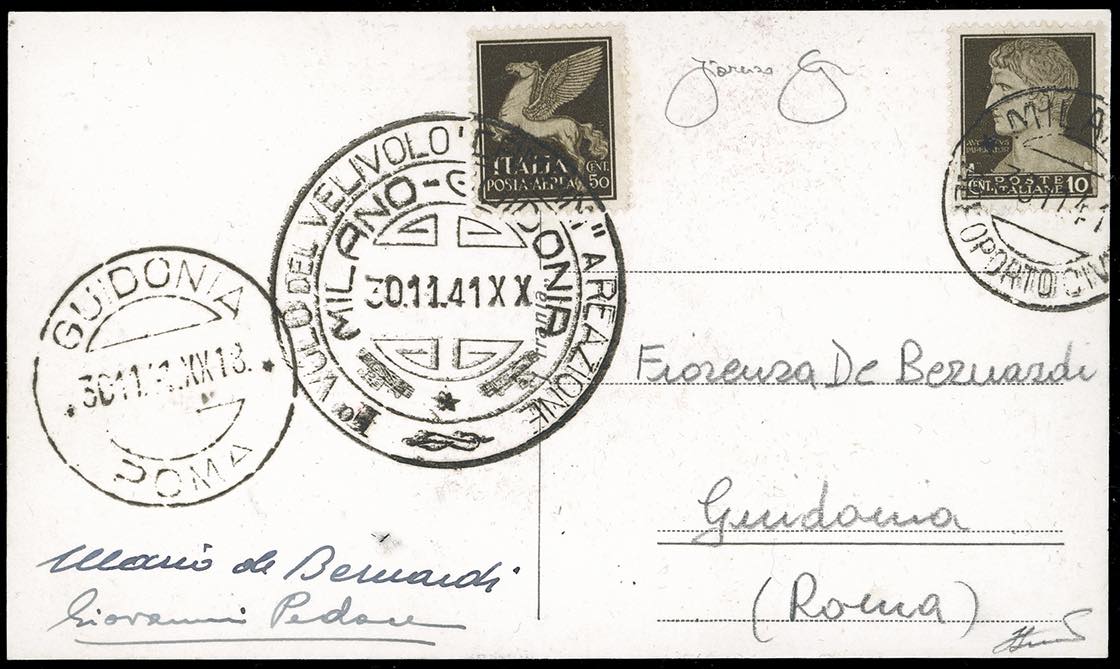 ITALIA
POSTA AEREA
CENT. 50
POSTE ITALIANE
CENT. 10
MILA
OPORTO CIVI
Iº VOLO DEL VELIVOLO A REAZIONE
MILANO-GUIDONIA
30.11.41 XX
GUIDONIA
30.11.41.XX 18.
ROMA
Fiorenza De Bernardi
Guidonia
(Roma)
Mario de Bernardi
Giovanni Pedace